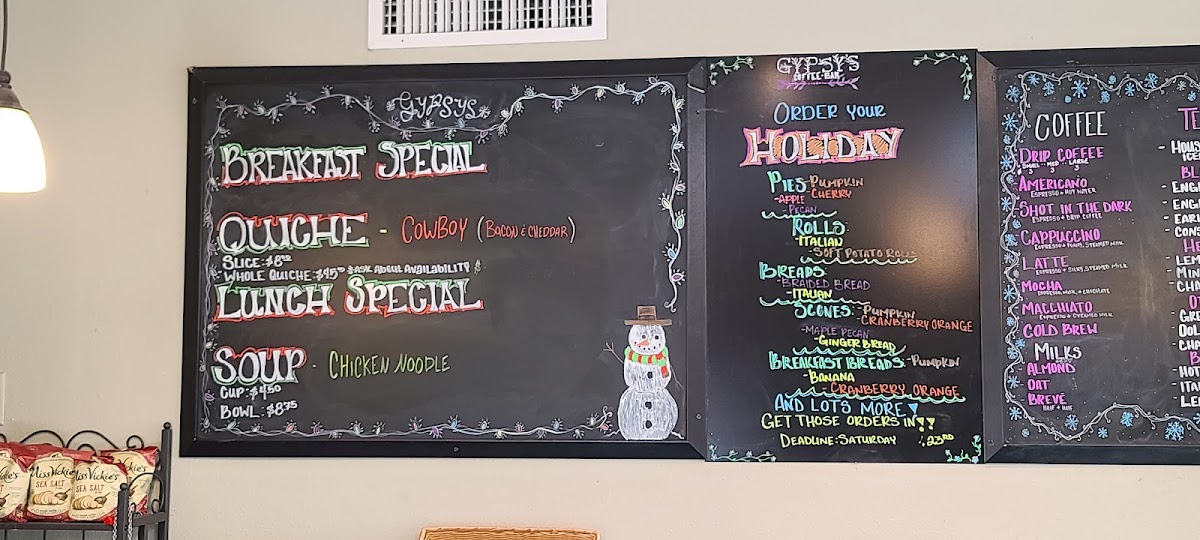 GYPSYS
BREAKFAST SPECIAL
QUICHE - COWBOY (BACON & CHEDDAR)
SLICE: $8
- WHOLE QUICHE: $45 $ASK ABOUT AVAILABILITY
LUNCH SPECIAL
SOUP - CHICKEN NOODLE
CUP: $4.50
BOWL: $8.75
GYPSY'S
COFFEE BAR
ORDER YOUR
HOLIDAY
PIES - PUMPKIN
- APPLE CHERRY
- PECAN
ROLLS:
- ITALIAN
- SOFT POTATO ROLLS
BREADS:
- BRAIDED BREAD
- ITALIAN
SCONES: - PUMPKIN
- CRANBERRY ORANGE
- MAPLE PECAN
- GINGER BREAD
BREAKFAST BREADS: - PUMPKIN
- BANANA
- CRANBERRY ORANGE
AND LOTS MORE!
GET THOSE ORDERS IN!!
DEADLINE: SATURDAY 23RD
COFFEE
DRIP COFFEE
SMALL MED LARGE
AMERICANO
ESPRESSO + HOT WATER
SHOT IN THE DARK
ESPRESSO + DRIP COFFEE
CAPPUCCINO
ESPRESSO + FOAMY STEAMED MILK
LATTE
ESPRESSO + SILKY STEAMED MILK
MOCHA
ESPRESSO, MILK, + CHOCOLATE
MACCHIATO
ESPRESSO + STEAMED MILK
COLD BREW
MILKS
- ALMOND
- OAT
- BREVE
HALF + HALF
MISS VICKIE'S
SEA SALT
MISS VICKIE'S
SEA SALT